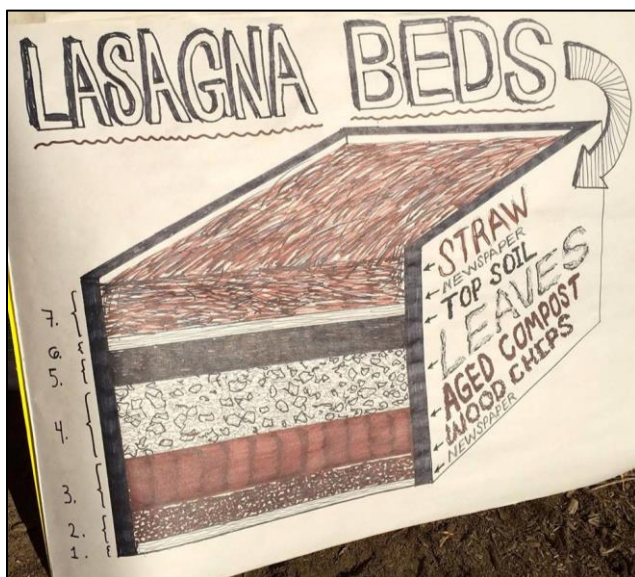 LASAGNA BEDS
STRAW
NEWSPAPER
TOP SOIL
LEAVES
AGED COMPOST
WOOD CHIPS
NEWSPAPER
7.
6.
5.
4.
3.
2.
1.